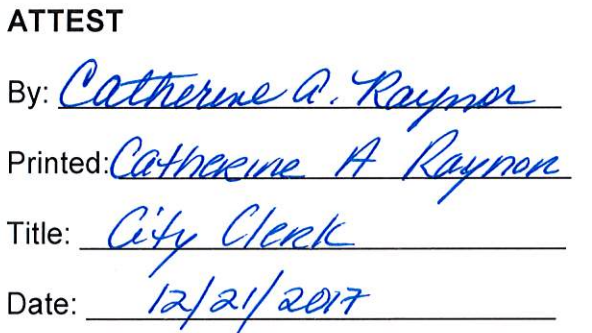 ATTEST
By: Catherine A. Raynor
Printed: Catherine A Raynor
Title: City Clerk
Date: 12/21/2017